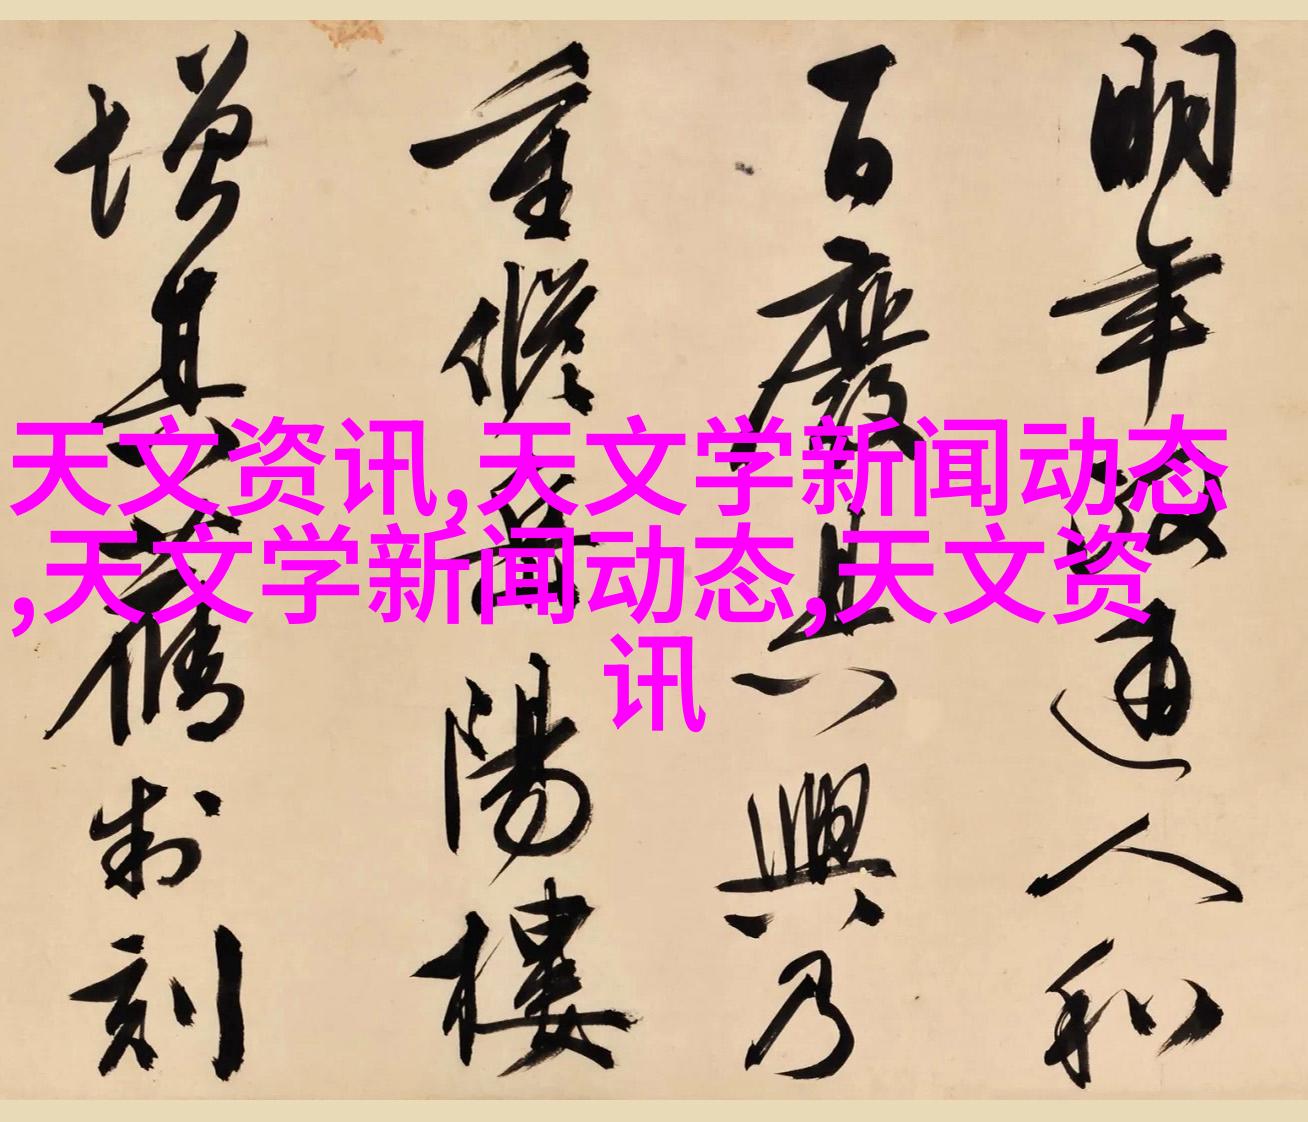 明年政通人和
百廢具興乃
重脩岳陽樓
增其舊制刻
天文资讯,天文学新闻动态
,天文学新闻动态,天文资
讯